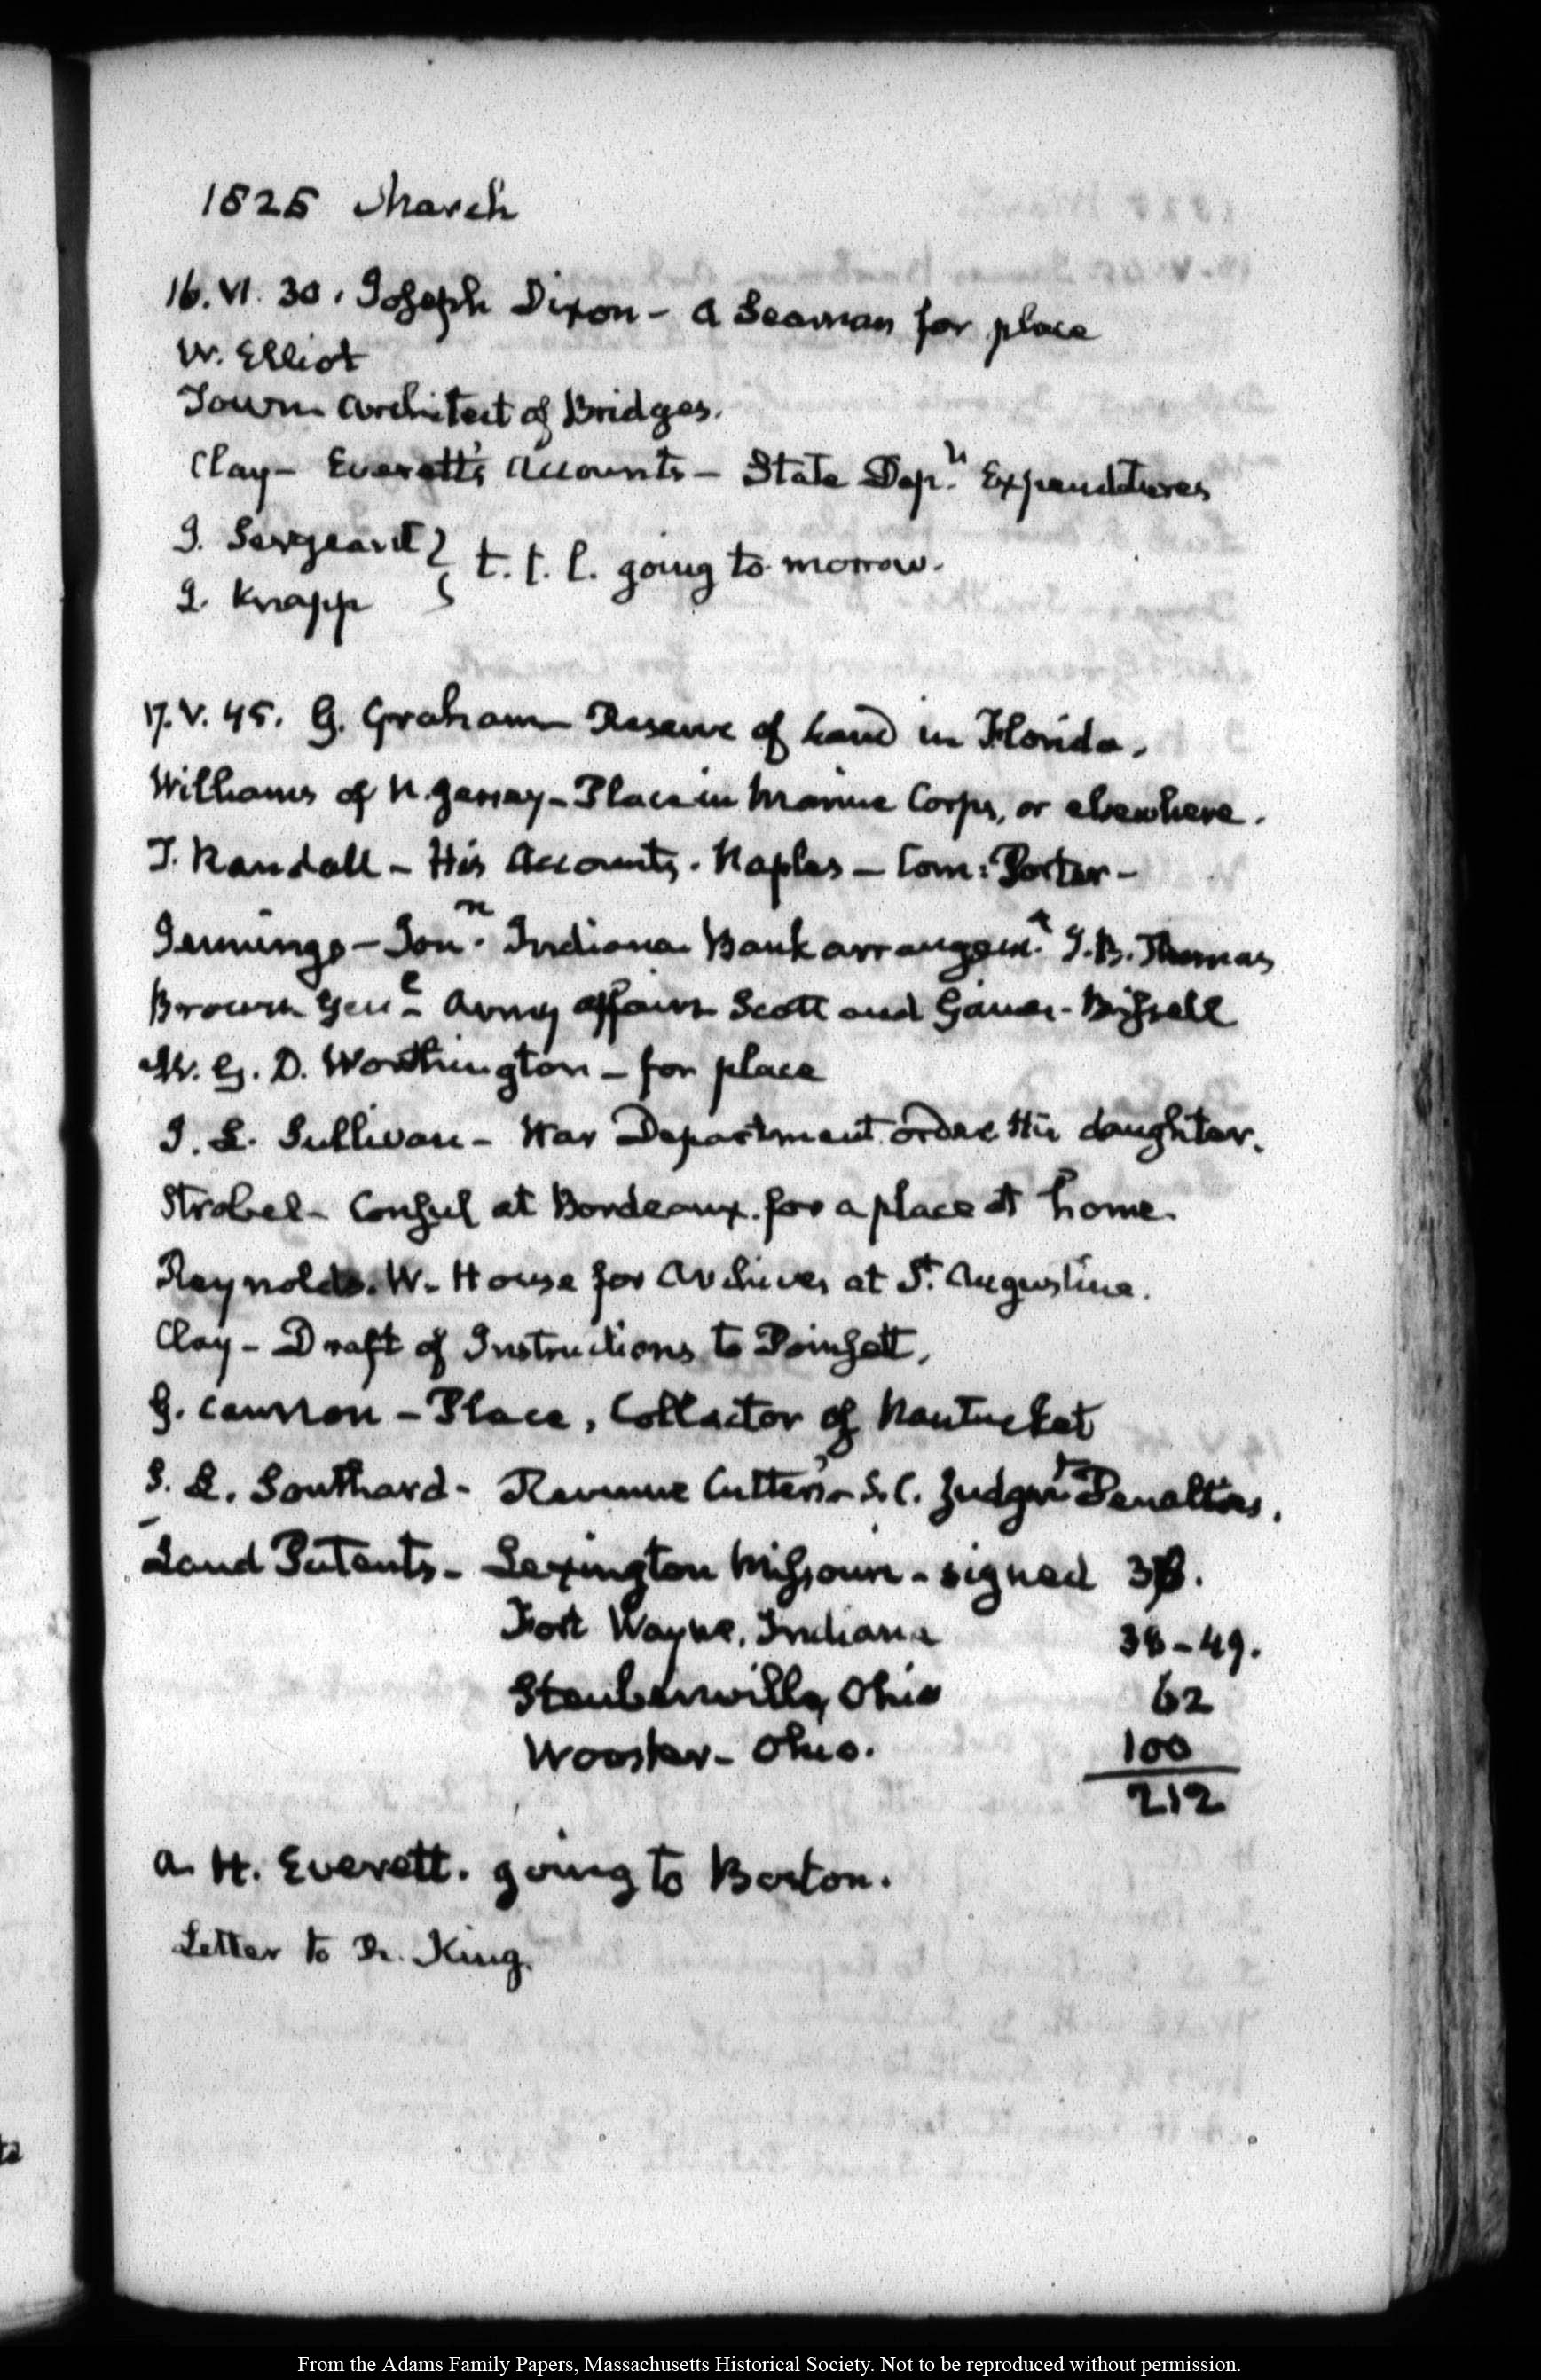 1825 March
16. VI. 30. Joseph Dixon – a Seaman for place
W. Elliot
Town Architect of Bridges.
Clay – Everett's Accounts – State Dep.ᵗ Expenditures
J. Sergeant }
J. Knapp } t. t. l. going to morrow.
17. V. 45. G. Graham Reserve of Land in Florida.
Williams of N. Jersey – Place in Marine Corps, or elsewhere.
T. Randall – His Accounts. Naples – Com: Porter –
Jennings – Jonⁿ. Indiana Bank arrangem.ᵗ J. B. Thomas
Brown Genˡ – Army affairs Scott and Gaines – Bissell
W. G. D. Worthington – for place
J. L. Sullivan – War Department order His daughter.
Strobel – Consul at Bordeaux. for a place at home.
Reynolds. W. House for Archives at Sᵗ. Augustine.
Clay – Draft of Instructions to Poinsett.
G. Cannon – Place, Collector of Nantucket
S. L. Southard – Revenue Cutters – S. C. Judgmᵗ Penalties.
Land Patents – Lexington Missouri – signed
Fort Wayne, Indiana 38–49.
Steubenville, Ohio 62
Wooster – Ohio. 100
212
A. H. Everett. going to Boston.
Letter to Dr. King.
From the Adams Family Papers, Massachusetts Historical Society. Not to be reproduced without permission.